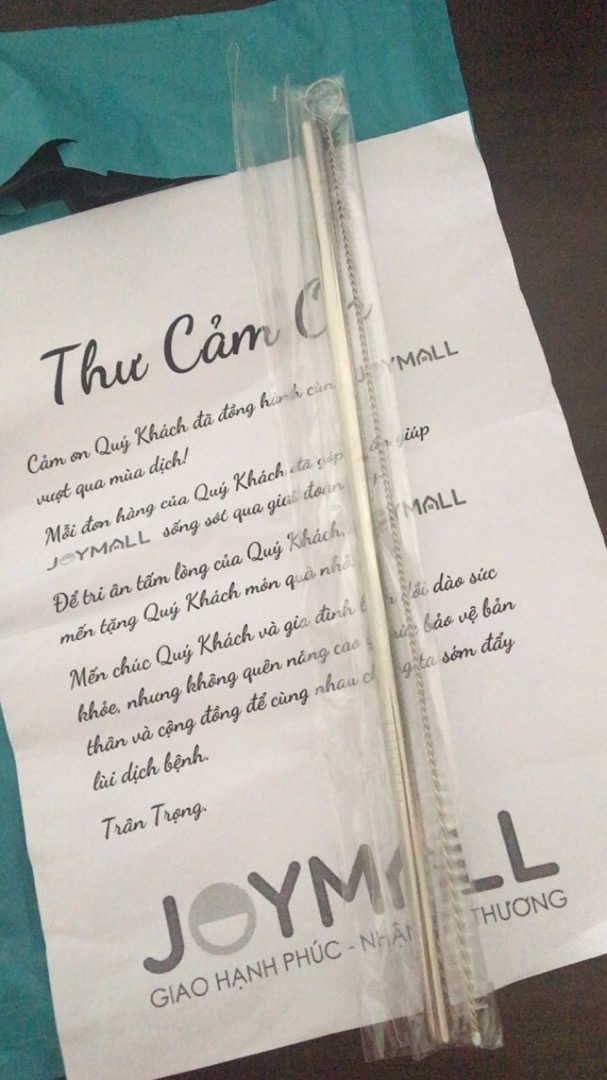 Thư Cảm
Cảm ơn Quý Khách đã đồng hành cùng JOYMALL
vượt qua mùa dịch!
Mỗi đơn hàng của Quý Khách đã góp giúp
JOYMALL sống sót qua giai đoạn
Để tri ân tấm lòng của Quý Khách, JOYMALL
mến tặng Quý Khách món quà nhỏ.
Mến chúc Quý Khách và gia đình dồi dào sức
khỏe, nhưng không quên nâng cao bảo vệ bản
thân và cộng đồng để cùng nhau chúng ta sớm đẩy
lùi dịch bệnh.
Trân Trọng.
JOYMALL
GIAO HẠNH PHÚC - NHẬN THƯƠNG